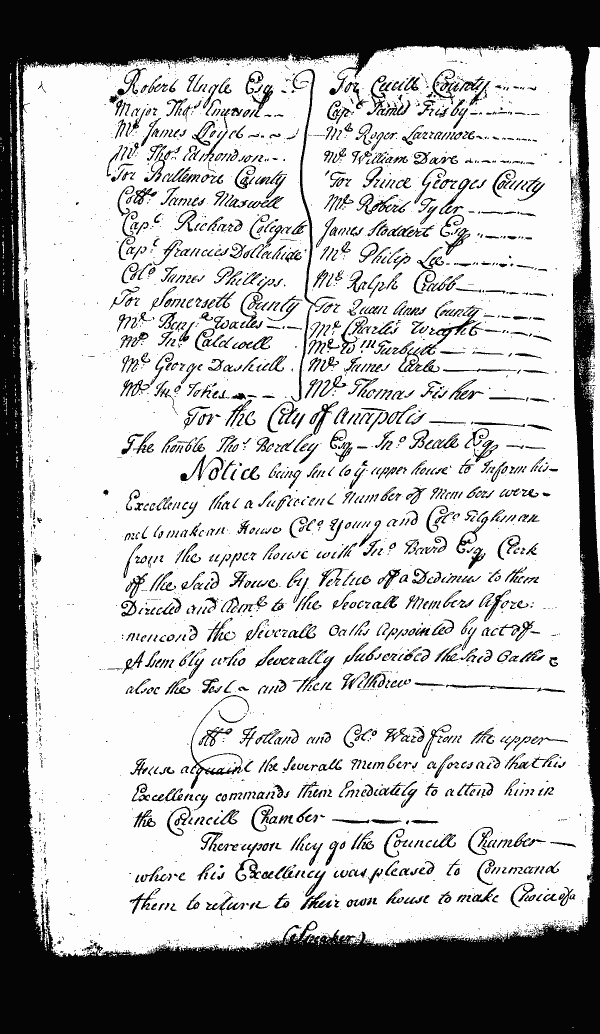 Robert Ungle Esq
Major Tho.s Emerson
Mr James Lloyd
Mr Tho.s Edmondson
For Baltemore County
Coll.o James Maxwell
Cap.t Richard Colegate
Cap.t Francies Dollahide
Col.o James Phillips.
For Somersett County
Mr Benj.a Wailes
Mr Jn.o Caldwell
Mr George Dashiell
Mr Jn.o Jokes
For Cecill County
Cap.t James Frisby
Mr Roger Larramore
Mr William Dare
For Prince Georges County
Mr Robert Tyler
James Stoddert Esq
Mr Philip Lee
Mr Ralph Crabb
For Quan Anns County
Mr Charles Wright
Mr Wm Turbutt
Mr James Earle
Mr Thomas Fisher
For the City of Anapolis
The honble Tho.s Bordley Esq Jn.o Beale Esq
Notice being sent to ye upper house to Inform his
Excellency that a Sufficent Number of Members were
met to make an House Col.o Young and Col.o Tilghman
from the upper house with Jn.o Beard Esq Clerk
of the Said House by Vertue of a Dedimus to them
Directed and Adm.d to the Severall Members afore:
mencond the Severall Oaths Appointed by act of
Assembly who Severally Subscribed the Said Oaths &
alsoe the Test and then Withdrew
Coll.o Holland and Col.o Ward from the upper
House acquaint the Severall Members aforesaid that his
Excellency commands them Emediately to attend him in
the Councill Chamber
Thereupon they go the Councill Chamber
where his Excellency was pleased to Command
them to return to their own house to make Choice of a
(Speaker)